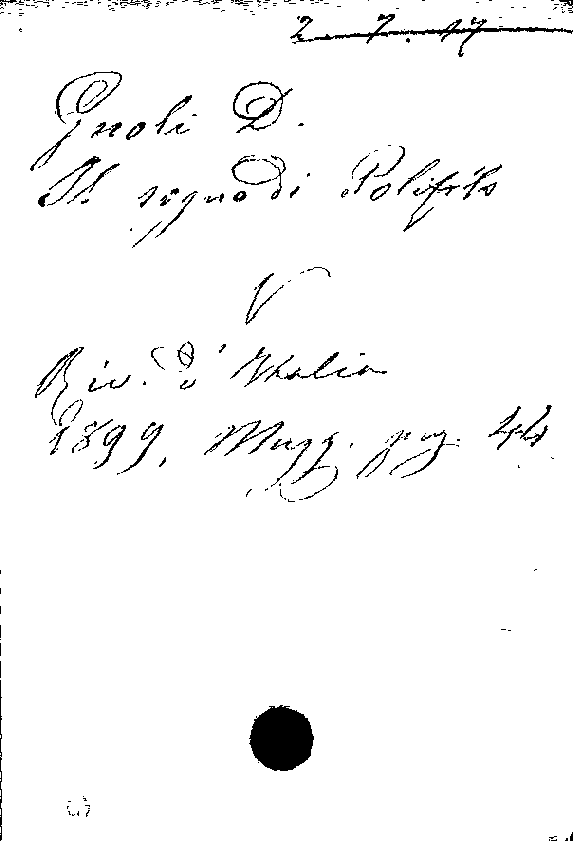 2. 7. 17
Gnoli D.
Il sogno di Polifilo
V
Riv. d'Italia
1899, Magg. pag. 44